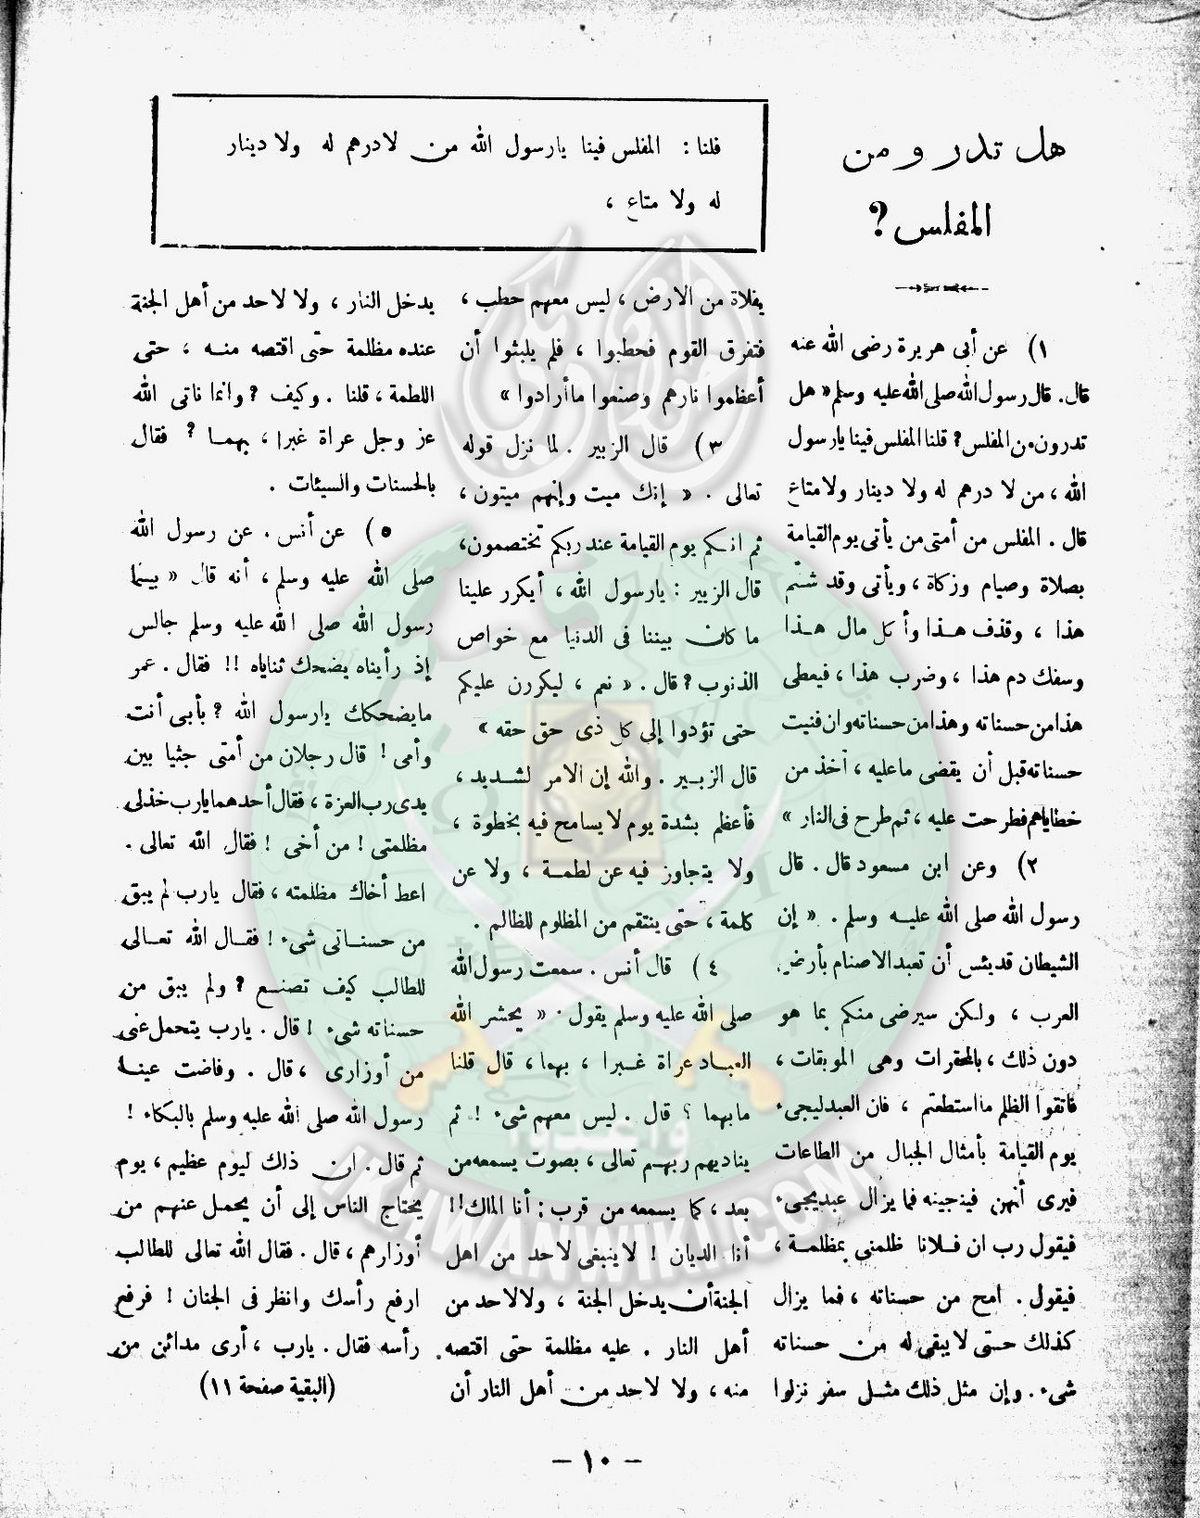 هل تدرو ومن
المفلس؟
قلنا : المفلس فينا يارسول الله من لادرهم له ولا دينار
له ولا متاع ،
١) عن أبى هريرة رضى الله عنه
قال . قال رسول الله صلى الله عليه وسلم « هل
تدرون من المفلس ؟ قلنا المفلس فينا يارسول
الله ، من لا درهم له ولا دينار ولا متاع
قال . المفلس من أمتى من يأتى يوم القيامة
بصلاة وصيام وزكاة ، ويأتى وقد شتم
هذا ، وقذف هذا وأكل مال هذا
وسفك دم هذا ، وضرب هذا ، فيعطى
هذا من حسناته وهذا من حسناته وان فنيت
حسناته قبل أن يقضى ماعليه ، أخذ من
خطاياهم فطرحت عليه ، ثم طرح فى النار »
٢) وعن ابن مسعود قال . قال
رسول الله صلى الله عليه وسلم . « إن
الشيطان قد يئس أن تعبد الاصنام بأرض
العرب ، ولكن سيرضى منكم بما هو
دون ذلك ، بالمحقرات وهى الموبقات ،
فاتقوا الظلم ما استطعتم ، فان العبد ليجىء
يوم القيامة بأمثال الجبال من الطاعات
فيرى أنهن فينجينه فما يزال عبد يجىء
فيقول رب ان فلانا ظلمنى بمظلمة ،
فيقول . امح من حسناته ، فما يزال
كذلك حتى لا يبقى له من حسناته
شىء . وإن مثل ذلك مثل سفر نزلوا
بفلاة من الارض ، ليس معهم حطب ،
فتفرق القوم فحطبوا ، فلم يلبثوا أن
أعظموا نارهم وصنعوا ما أرادوا »
٣) قال الزبير . لما نزل قوله
تعالى . « إنك ميت وإنهم ميتون ،
ثم انكم يوم القيامة عند ربكم تختصمون،
قال الزبير : يارسول الله ، أيكرر علينا
ما كان بيننا فى الدنيا مع خواص
الذنوب ؟ قال . « نعم ، ليكررن عليكم
حتى تؤدوا إلى كل ذى حق حقه »
قال الزبير . والله إن الامر لشديد ،
فأعظم بشدة يوم لا يسامح فيه بخطوة ،
ولا يتجاوز فيه عن لطمة ، ولا عن
كلمة ، حتى ينتقم من المظلوم للظالم .
٤) قال أنس . سمعت رسول الله
صلى الله عليه وسلم يقول . « يحشر الله
العباد عراة غبرا ، بهما ، قال قلنا
مابهما ؟ قال . ليس معهم شىء ! ثم
يناديهم ربهم تعالى ، بصوت يسمعه من
بعد ، كما يسمعه من قرب : أنا الملك !!
أنا الديان ! لا ينبغى لاحد من اهل
الجنة أن يدخل الجنة ، ولا لاحد من
أهل النار . عليه مظلمة حتى اقتصه
منه ، ولا لاحد من أهل النار أن
يدخل النار ، ولا لاحد من أهل الجنة
عنده مظلمة حتى اقتصه منه ، حتى
اللطمة ، قلنا . وكيف ؟ وانما ناتى الله
عز وجل عراة غبرا ، بهما ؟ فقال
بالحسنات والسيئات .
٥) عن أنس . عن رسول الله
صلى الله عليه وسلم ، أنه قال « بينما
رسول الله صلى الله عليه وسلم جالس
إذ رأيناه يضحك ثناياه !! فقال . عمر
مايضحكك يارسول الله ؟ بأبى أنت
وأمى ! قال رجلان من أمتى جثيا بين
يدى رب العزة ، فقال أحدهما يارب خذلى
مظلمتى ! من أخى ! فقال الله تعالى .
اعط أخاك مظلمته ، فقال يارب لم يبق
من حسناتى شىء ! فقال الله تعالى
للطالب كيف تصنع ؟ ولم يبق من
حسناته شىء ! قال . يارب يتحمل عنى
من أوزارى ، قال . وفاضت عينا
رسول الله صلى الله عليه وسلم بالبكاء !
ثم قال . ان ذلك ليوم عظيم ، يوم
يحتاج الناس إلى أن يحمل عنهم من
أوزارهم ، قال . فقال الله تعالى للطالب
ارفع رأسك وانظر فى الجنان ! فرفع
رأسه فقال . يارب ، أرى مدائن من
(البقية صفحة ١١)
— ١٠ —
وأعدوا
IKHWANWIKI.COM